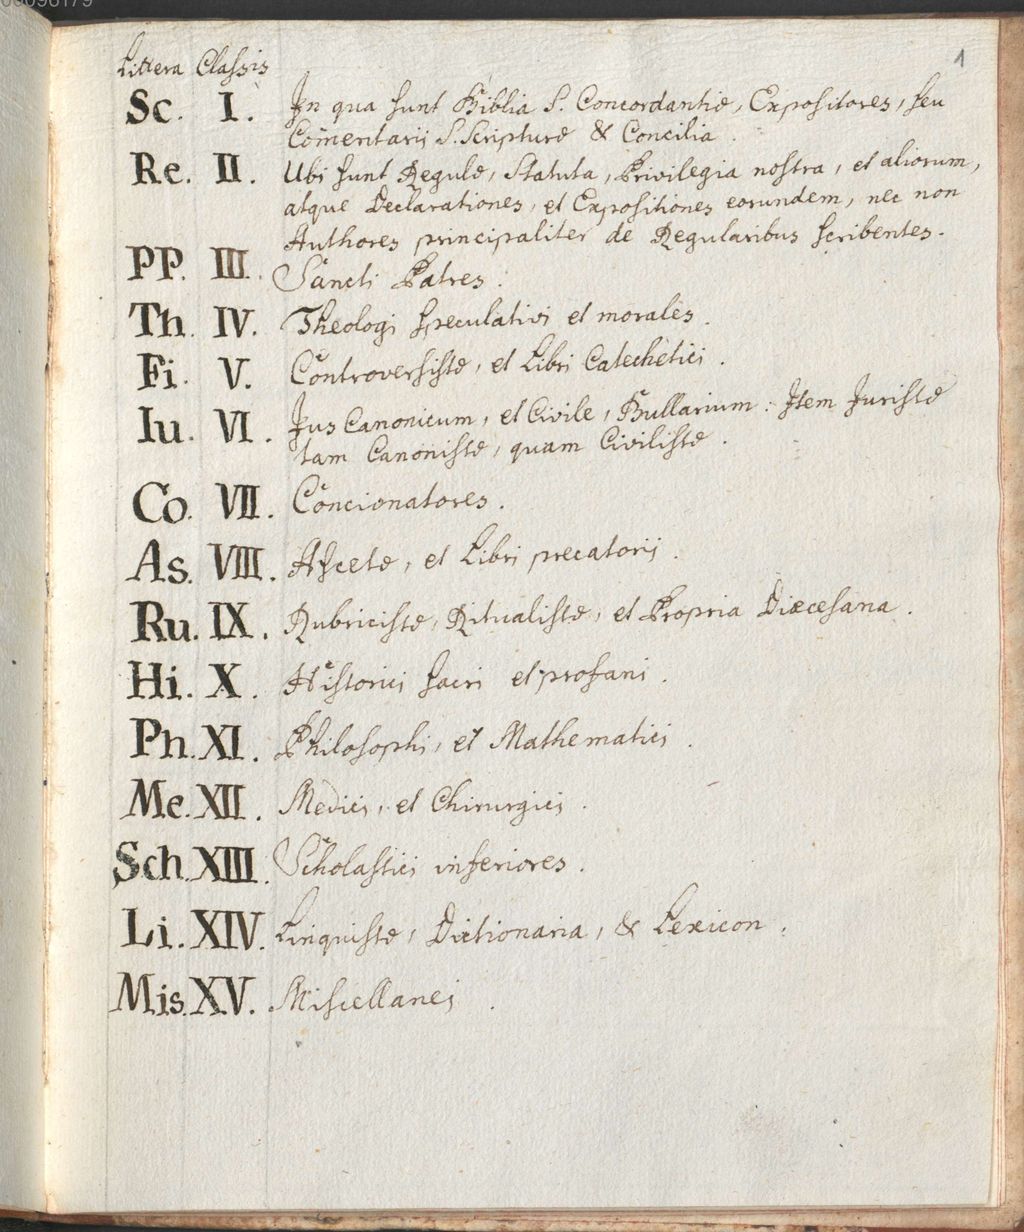 00096179
1
Littera Classis
Sc. I. Jn qua sunt Biblia S. Concordantiæ, Expositores, seu
Com̃entarij S. Scripturæ & Concilia.
Re. II. Ubi sunt Regulæ, Statuta, Privilegia nostra, et aliorum,
atque Declarationes, et Expositiones eorundem, nec non
Authores principaliter de Regularibus scribentes.
PP. III. Sancti Patres.
Th. IV. Theologi speculativi et morales.
Fi. V. Controversistæ, et Libri Catechetici.
Iu. VI. Jus Canonicum, et Civile, Bullarium. Jtem Juristæ
tam Canonistæ, quam Civilistæ.
Co. VII. Concionatores.
As. VIII. Ascetæ, et Libri precatorij.
Ru. IX. Rubricistæ, Ritualistæ, et Propria Diœcesana.
Hi. X. Historici sacri et profani.
Ph. XI. Philosophi, et Mathematici.
Me. XII. Medici, et Chirurgici.
Sch. XIII. Scholastici inferiores.
Li. XIV. Linquistæ, Dictionaria, & Lexicon.
Mis. XV. Miscellanei.